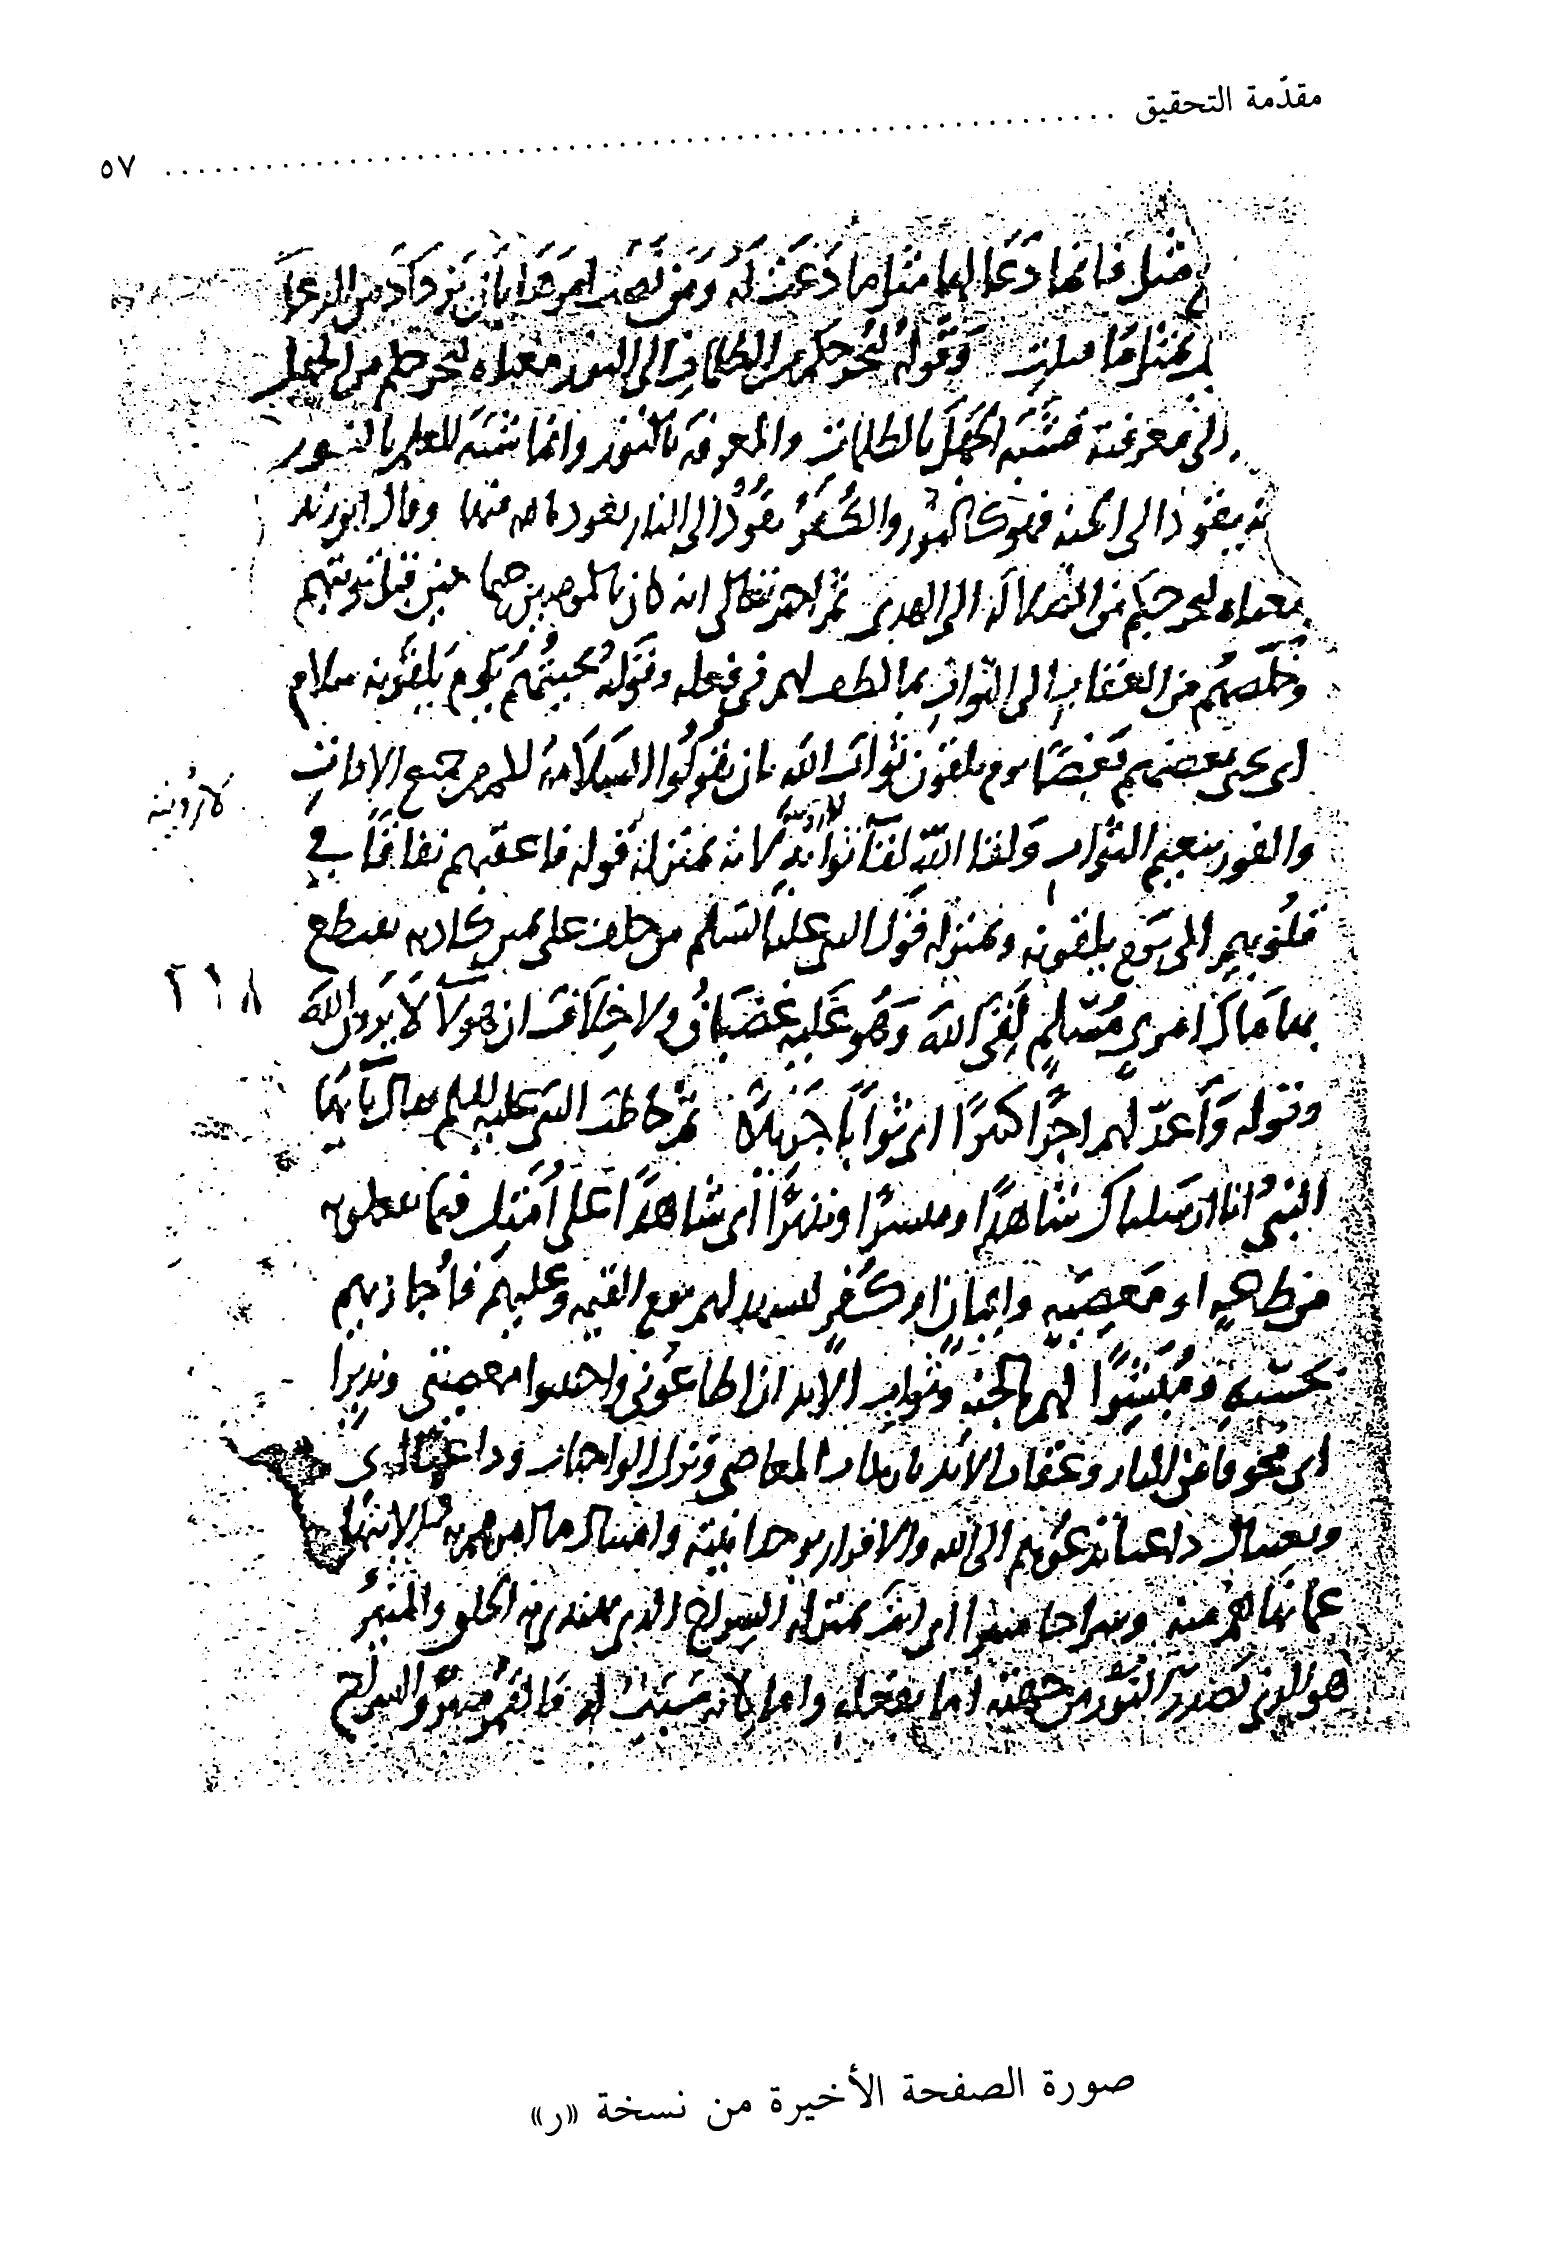 مقدّمة التحقيق ........................................................ ٥٧
مثل فانما دعا لها مثل ما دعت له ومن نصب امر هذا بان يزداد من الدعا
بمثل ما صلت وقوله ليخرجكم من الظلمات الى النور معناه ليخرجكم من الجهل
الى معرفته فشبه الجهل بالظلمات والمعرفة بالنور وانما شبه العلم بالنور
نه يقود الى الجنة فهو كالنور والكفر يقود الى النار نعوذ بالله منها وقال ابن زيد
معناه ليخرجكم من الضلالة الى الهدى ثم اخبر تعالى انه كان بالمومنين رحيما حين قبل توبتهم
وخلصهم من العقاب الى الثواب بما لطف لهم في فعله وقوله تحيتهم يوم يلقونه سلام
اى يحيى بعضهم بعضا يوم يلقون ثواب الله بان يقولوا السلامة لكم من جميع الافات
والفوز بنعيم الثواب ولقا الله لقا ثوابه لا رويته لانه بمنزلة قوله فاعقبهم نفاقا في
لا رويته
قلوبهم الى يوم يلقونه وبمنزلة قول النبى عليه السلم من حلف على يمين كاذبه يقتطع
بها مال امرى مسلم لقى الله وهو عليه غضبان ولا خلاف ان هولا لا يرون الله
٢١٨
وقوله واعد لهم اجرا كبيرا اى ثوابا جزيلا ثم خاطب النبى عليه السلم فقال يا ايها
النبى انا ارسلناك شاهدا ومبشرا ونذيرا اى شاهدا على امتك فيما يفعلونه
من طاعة او معصية وايمان او كفر لتشهد لهم يوم القيمة وعليهم فاجازيهم
بحسبه ومبشرا لهم بالجنة وثواب الابد ان اطاعونى واجتنبوا معصيتى ونذيرا
اى مخوفا من النار وعقاب الابد بارتكاب المعاصى وترك الواجبات وداعيا الى
وبعثناك داعيا تدعوهم الى الله والاقرار بوحدانيته وامتثال ما امرهم به والانتها
عما نهاهم عنه وسراجا منيرا اى انت بمنزلة السراج الذى يهتدى به الخلق والمنير
هو الذى يصدر النور من جهته اما بفعله واما لانه سبب له فالقمر منير والسراج
صورة الصفحة الأخيرة من نسخة «ر»